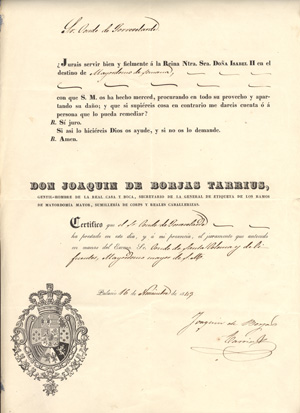 Sr. Conde de
¿Jurais servir bien y fielmente á la Reina Ntra. Sra. DOÑA ISABEL II en el
destino de Mayordomo de semana,
con que S. M. os ha hecho merced, procurando en todo su provecho y apartando
su daño; y que si supiéreis cosa en contrario me dareis cuenta ó á
persona que lo pueda remediar?
R. Sí juro.
Si asi lo hiciéreis Dios os ayude, y si no os lo demande.
R. Amen.
DON JOAQUIN DE BORJAS TARRIUS,
GENTIL-HOMBRE DE LA REAL CASA Y BOCA, SECRETARIO DE LA GENERAL DE ETIQUETA DE LOS RAMOS
DE MAYORDOMÍA MAYOR, SUMILLERÍA DE CORPS Y REALES CABALLERIZAS.
Certifico que el Sr. Conde de
ha prestado en este dia, y á mi presencia, el juramento que antecede
en manos del Excmo. Sr. Conde de Santa Coloma y de
Cifuentes, Mayordomo mayor de S. M.
Palacio 16 de Noviembre de 1849
Joaquin de Borjas
Tarrius